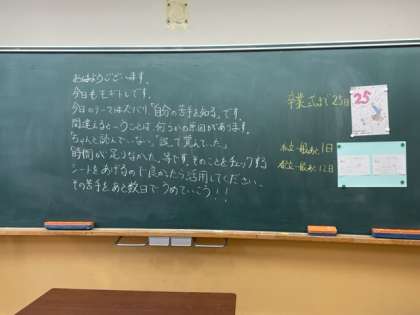 おはようございます。
今日もモギトレです。
今日のテーマはズバリ、「自分の苦手を知る」です。
間違えるということは、何らかの原因があります。
「ちゃんと読んでいない」、「誤って覚えてた」、
「時間が足りなかった」等です。そのことをチェックする
シートをあげるので良かったら活用してください。
その苦手をあと数日でうめていこう！！
卒業式まで25日
25
私立一般あと1日
公立一般あと12日